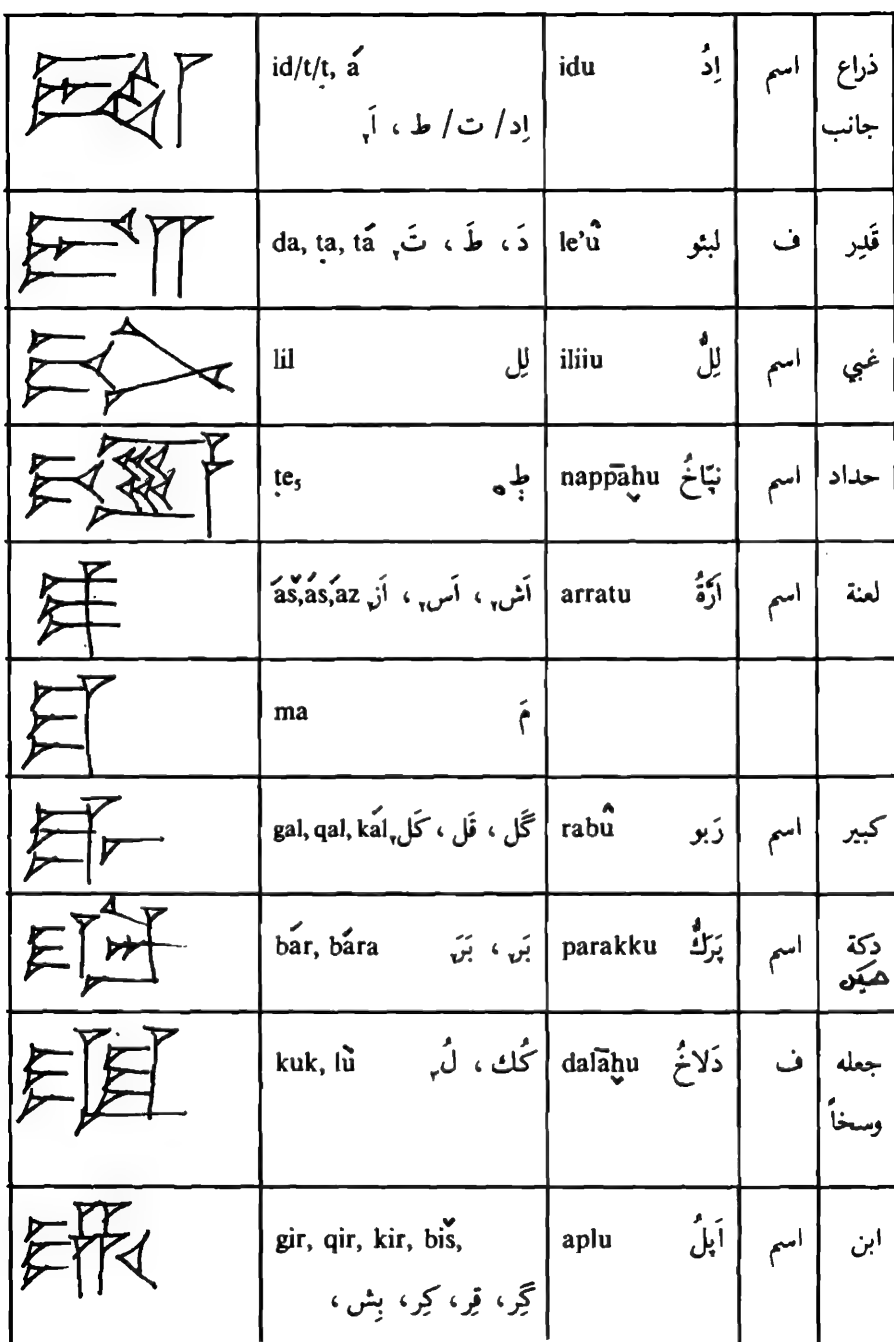 id/t/ṭ, á idu اِدُ اسم ذراع
اِد / ت / ط ، اَ٢ جانب
da, ṭa, tá دَ ، طَ ، تَ٢ le'û لبئو ف قَدِر
lil لِل iliiu لِلُّ اسم غبي
ṭe₅ طِ٥ nappāḫu نپّاخُ اسم حداد
áš,ás,áz اَش٢ ، اَس٢ ، اَز٢ arratu اَرَّةُ اسم لعنة
ma مَ
gal, qal, kál گَل ، قَل ، كَل٢ rabû رَبو اسم كبير
bár, bára بَر٢ ، بَرَ٢ parakku پَرَكُّ اسم دكة
kuk, lù كُك ، لُ٣ dalāḫu دَلاخُ ف جعله
وسخاً
gir, qir, kir, biš, aplu اَپلُ اسم ابن
گِر ، قِر ، كِر ، بِش ،